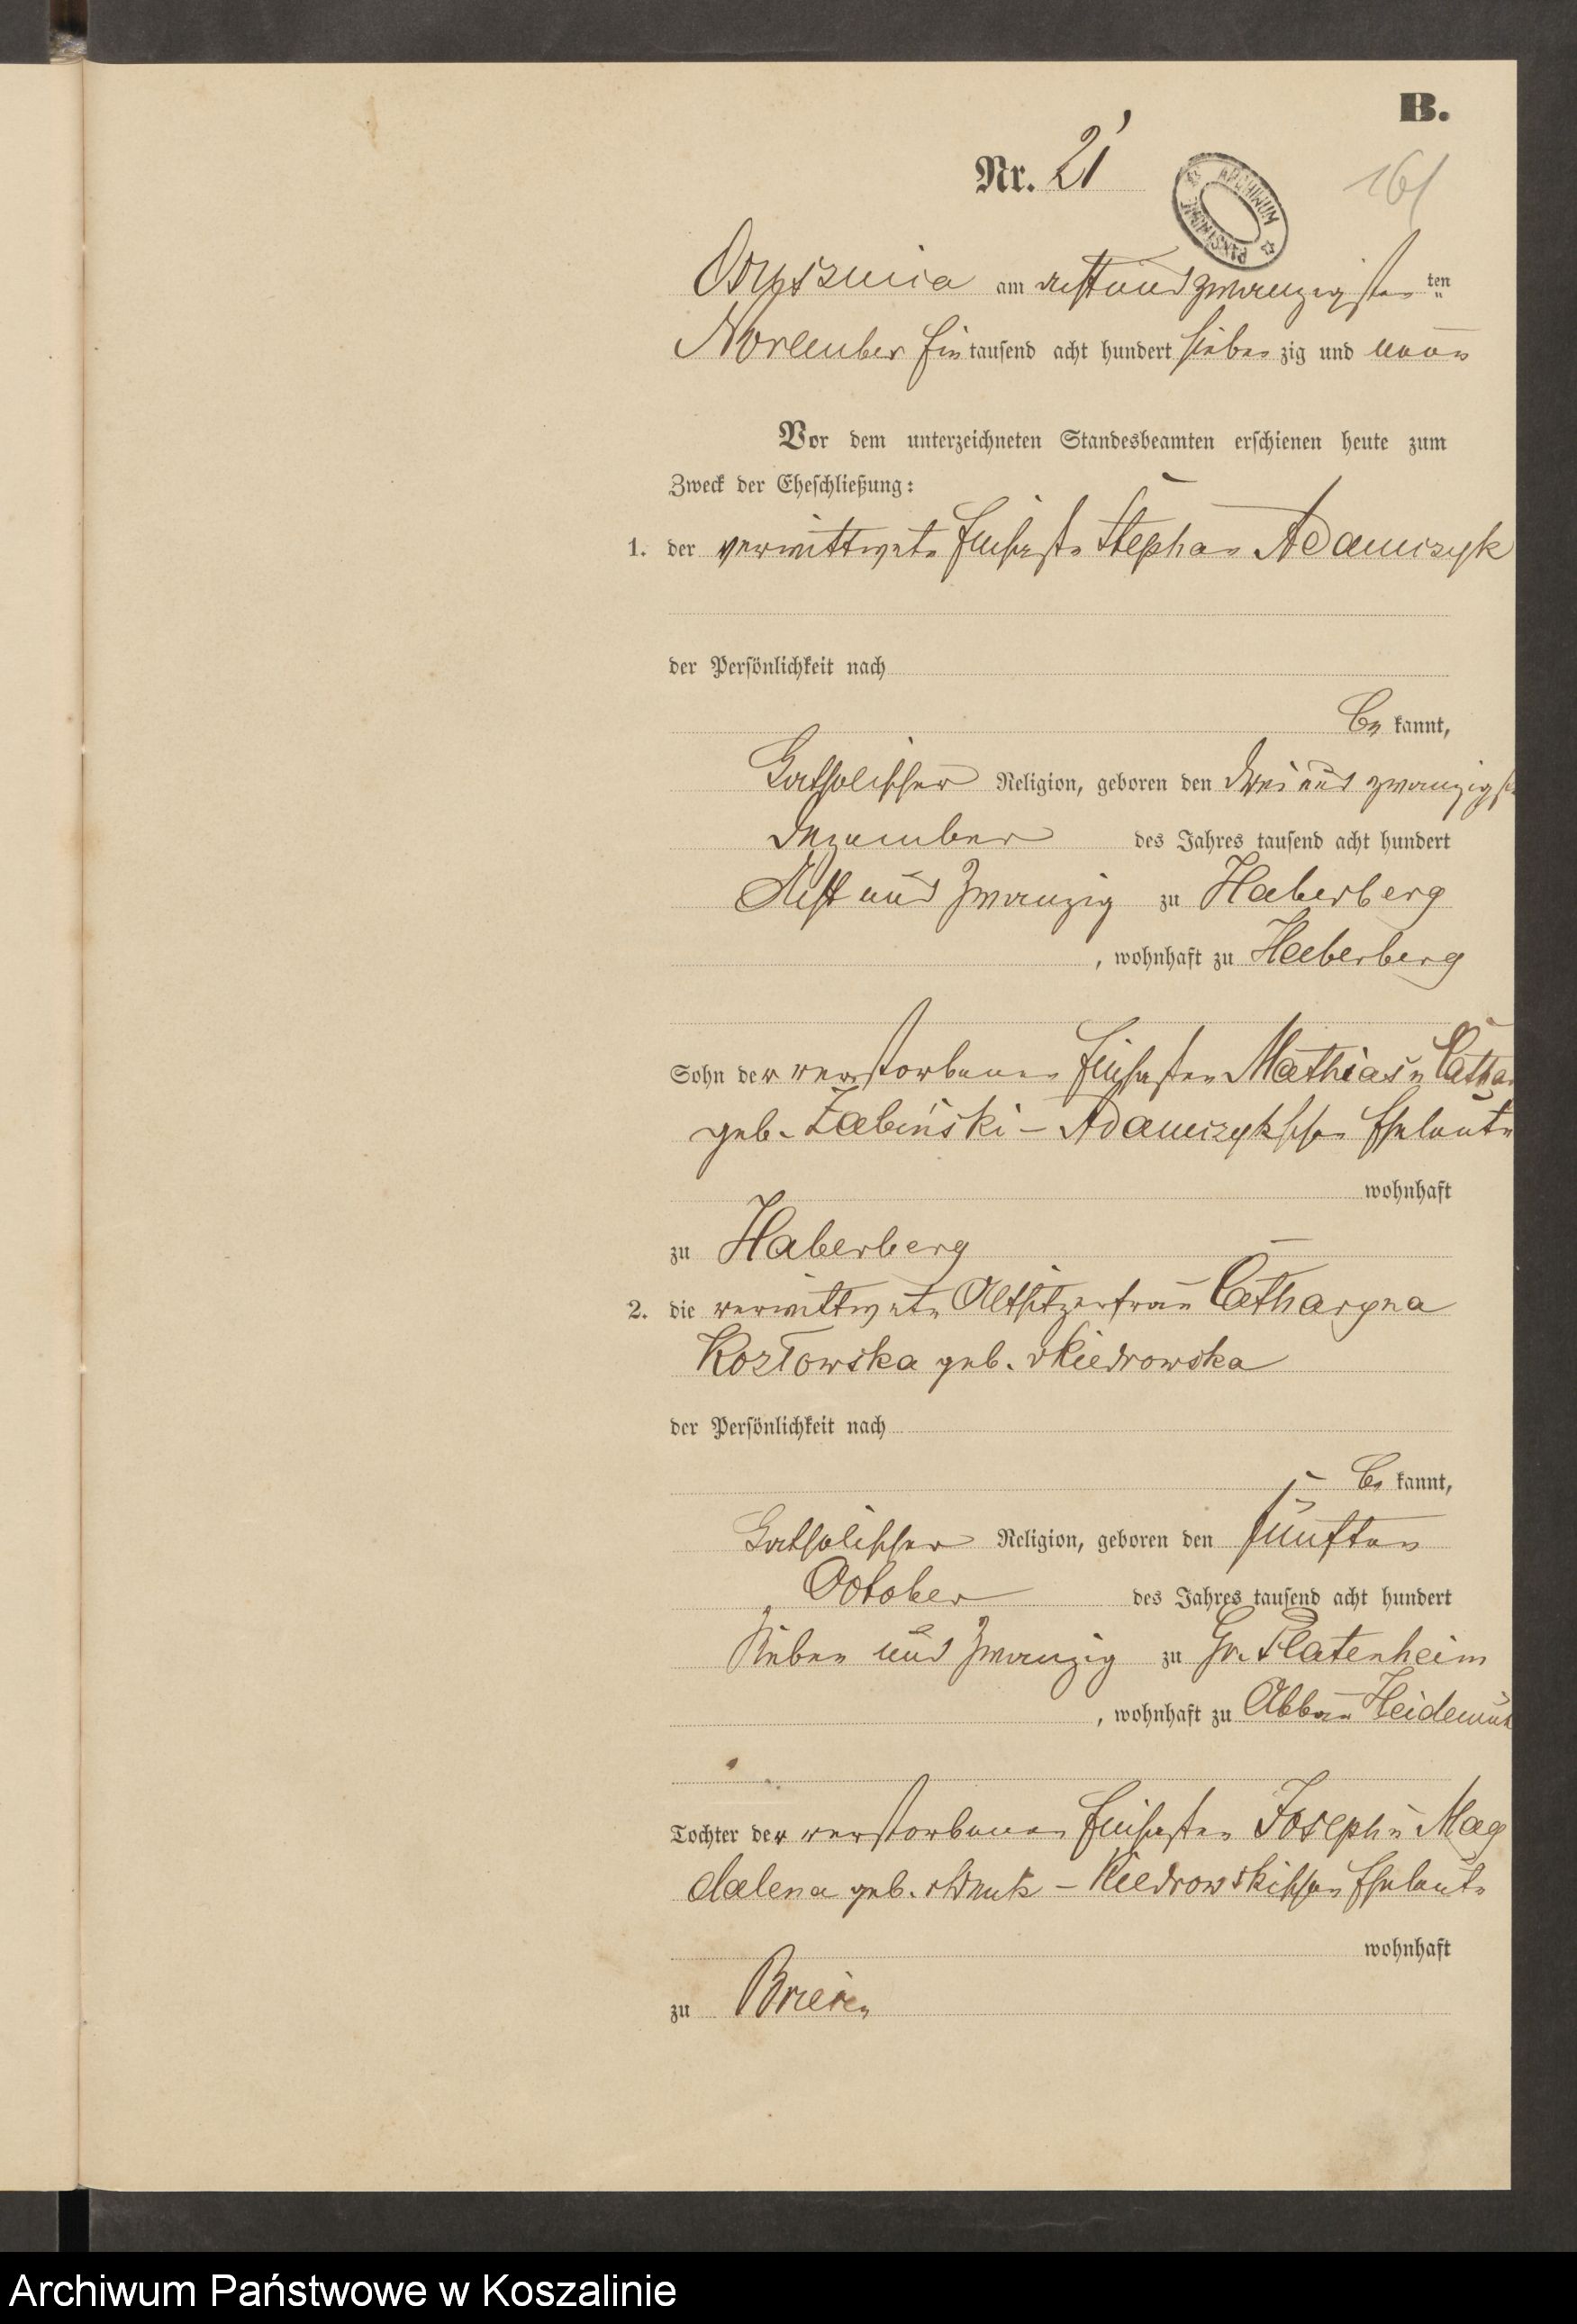 B.
Nr. 21
161
ARCHIWUM PAŃSTWOWE
Ossusznica am acht und zwanzigsten ten
November Ein tausend acht hundert sieben zig und neun
Vor dem unterzeichneten Standesbeamten erschienen heute zum
Zweck der Eheschließung:
1. der verwittwete Einsasse Stephan Adamczyk
der Persönlichkeit nach
be kannt,
katholischer Religion, geboren den drei und zwanzigsten
Dezember des Jahres tausend acht hundert
Acht und Zwanzig zu Haberberg
, wohnhaft zu Haberberg
Sohn der verstorbenen Einsassen Mathias u Cathar
geb. Żabiński - Adamczykschen Eheleute
wohnhaft
zu Haberberg
2. die verwittwete Altsitzerfrau Catharyna
Kozłowska geb. v Kiedrowska
der Persönlichkeit nach
be kannt,
katholischer Religion, geboren den fünften
October des Jahres tausend acht hundert
Sieben und Zwanzig zu Gr. Platenheim
, wohnhaft zu Abbau Heidemüh
Tochter der verstorbenen Einsassen Joseph u Mag
dalena geb. - Kiedrowskischen Eheleute
wohnhaft
zu Briesen
Archiwum Państwowe w Koszalinie